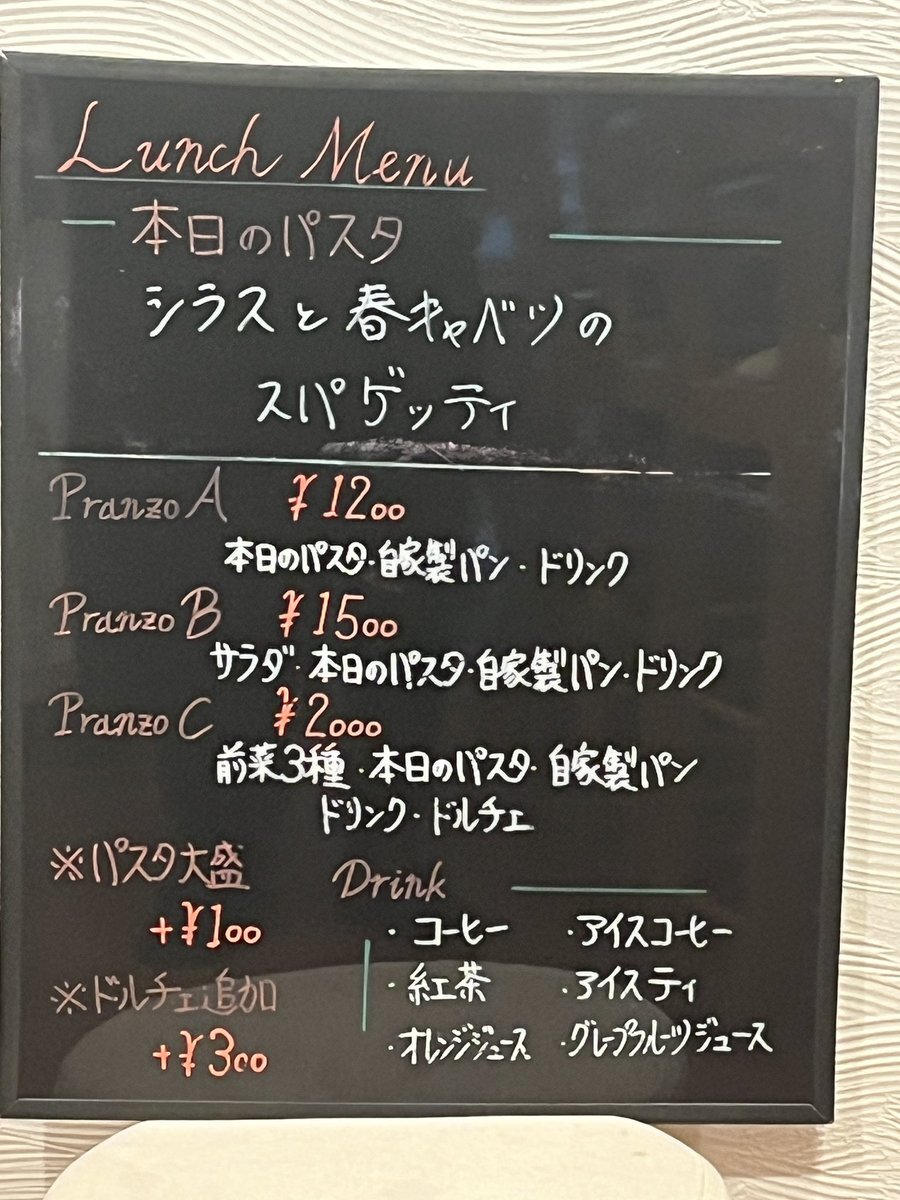 Lunch Menu
本日のパスタ
シラスと春キャベツの
スパゲッティ
Pranzo A ¥1200
本日のパスタ・自家製パン・ドリンク
Pranzo B ¥1500
サラダ・本日のパスタ・自家製パン・ドリンク
Pranzo C ¥2000
前菜3種・本日のパスタ・自家製パン
ドリンク・ドルチェ
※パスタ大盛
+¥100
※ドルチェ追加
+¥300
Drink
・コーヒー ・アイスコーヒー
・紅茶 ・アイスティ
・オレンジジュース ・グレープフルーツジュース